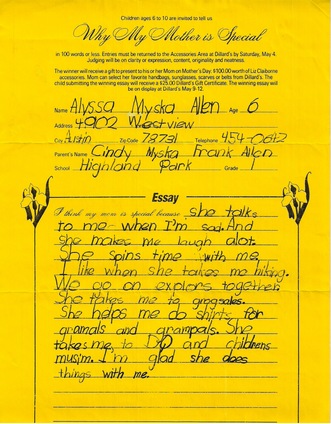 Children ages 6 to 10 are invited to tell us
Why My Mother is Special
in 100 words or less. Entries must be returned to the Accessories Area at Dillard's by Saturday, May 4.
Judging will be on clarity or expression, content, originality and neatness.
The winner will receive a gift to present to his or her Mom on Mother's Day: $100.00 worth of Liz Claiborne
accessories. Mom can select her favorite handbags, sunglasses, scarves or belts from Dillard's. The
child submitting the winning essay will receive a $25.00 Dillard's Gift Certificate. The winning essay will
be on display at Dillard's May 9-12.
Name Alyssa Myska Allen Age 6
Address 4902 Westview
City Austin Zip Code 78731 Telephone 454-0642
Parent's Name Cindy Myska Frank Allen
School Highland Park Grade 1
Essay
I think my mom is special because she talks
to me when I'm sad. And
She makes me laugh alot.
She spins time with me.
I like when she takes me hiking.
We go on explors together.
She takes me to grogsales.
She helps me do shirts for
gramals and grampals. She
takes me to DQ and childrens
musim. I'm glad she does
things with me.